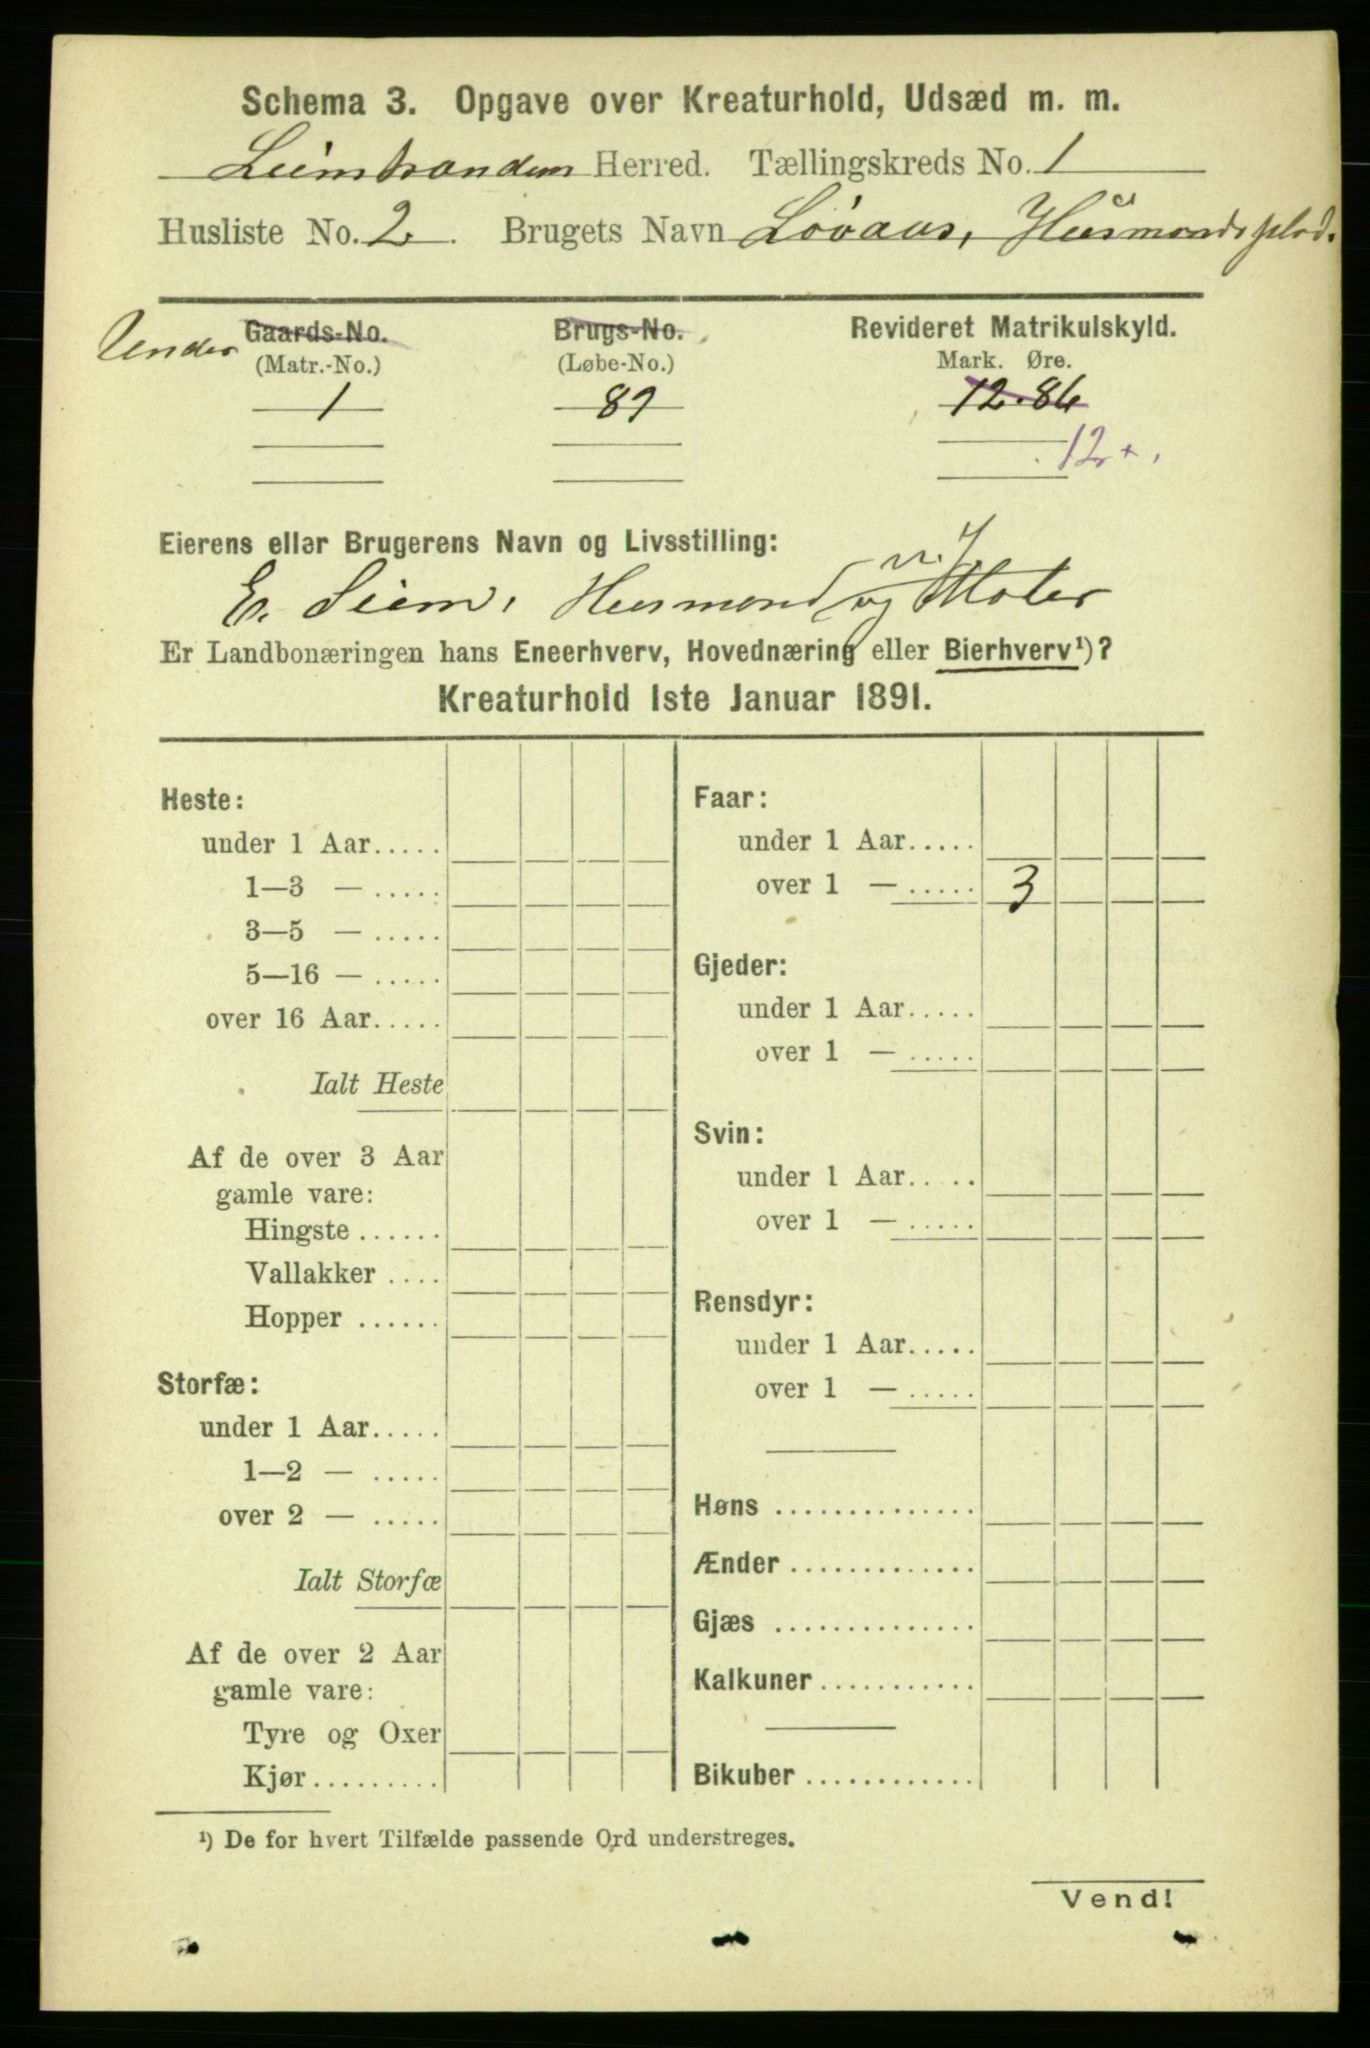 Schema 3. Opgave over Kreaturhold, Udsæd m. m.
Leinstranden Herred. Tællingskreds No. 1
Husliste No. 2. Brugets Navn Løvaas, Husmandsplads.
Under Gaards-No. Brugs-No. Revideret Matrikulskyld.
(Matr.-No.) (Løbe-No.) Mark. Øre.
1 89 12.86
12
Eierens eller Brugerens Navn og Livsstilling:
E. Siem, Husmand og Maler
Er Landbonæringen hans Eneerhverv, Hovednæring eller Bierhverv¹)?
Kreaturhold 1ste Januar 1891.
Heste:
under 1 Aar.....
1—3 — .....
3—5 — .....
5—16 — .....
over 16 Aar.....
Ialt Heste
Af de over 3 Aar
gamle vare:
Hingste ......
Vallakker ....
Hopper ......
Storfæ:
under 1 Aar.....
1—2 — .....
over 2 — .....
Ialt Storfæ
Af de over 2 Aar
gamle vare:
Tyre og Oxer
Kjør.........
Faar:
under 1 Aar.....
over 1 — ..... 3
Gjeder:
under 1 Aar.....
over 1 — .....
Svin:
under 1 Aar.....
over 1 — .....
Rensdyr:
under 1 Aar.....
over 1 — .....
Høns ..............
Ænder .............
Gjæs ..............
Kalkuner ...........
Bikuber ............
¹) De for hvert Tilfælde passende Ord understreges.
Vend!